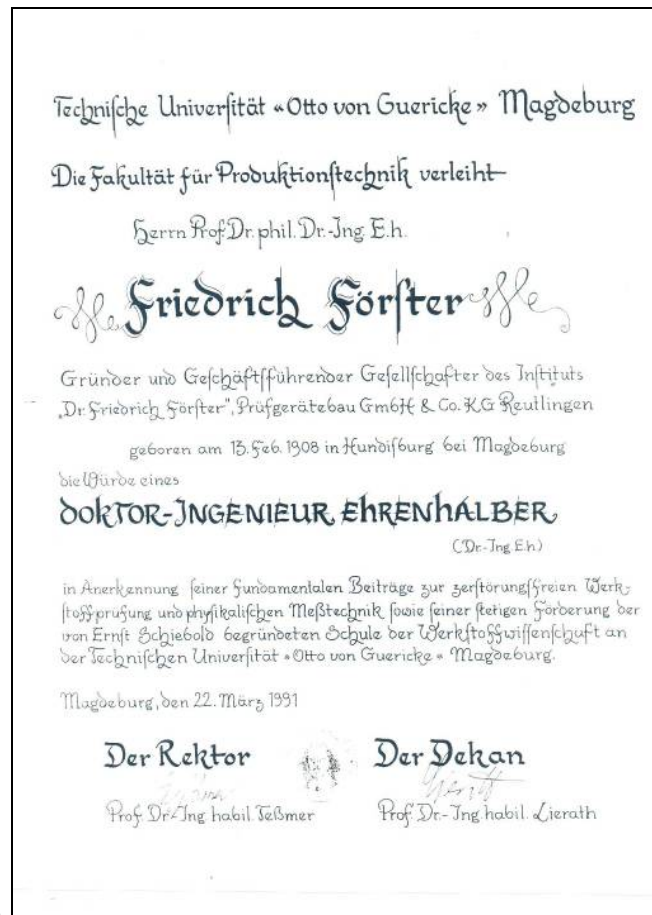 Technische Universität «Otto von Guericke» Magdeburg
Die Fakultät für Produktionstechnik verleiht
Herrn Prof. Dr. phil. Dr.-Ing. E.h.
Friedrich Förster
Gründer und Geschäftsführender Gesellschafter des Instituts
„Dr. Friedrich Förster", Prüfgerätebau GmbH & Co. KG Reutlingen
geboren am 13. Feb. 1908 in Hundisburg bei Magdeburg
die Würde eines
DOKTOR-INGENIEUR EHRENHALBER
(Dr.-Ing E.h)
in Anerkennung seiner fundamentalen Beiträge zur zerstörungsfreien Werk-
stoffprüfung und physikalischen Meßtechnik sowie seiner stetigen Förderung der
von Ernst Schiebold begründeten Schule der Werkstoffwissenschaft an
der Technischen Universität «Otto von Guericke» Magdeburg.
Magdeburg, den 22. März 1991
Der Rektor Der Dekan
Prof. Dr.-Ing habil. Teßmer Prof. Dr.-Ing habil. Lierath